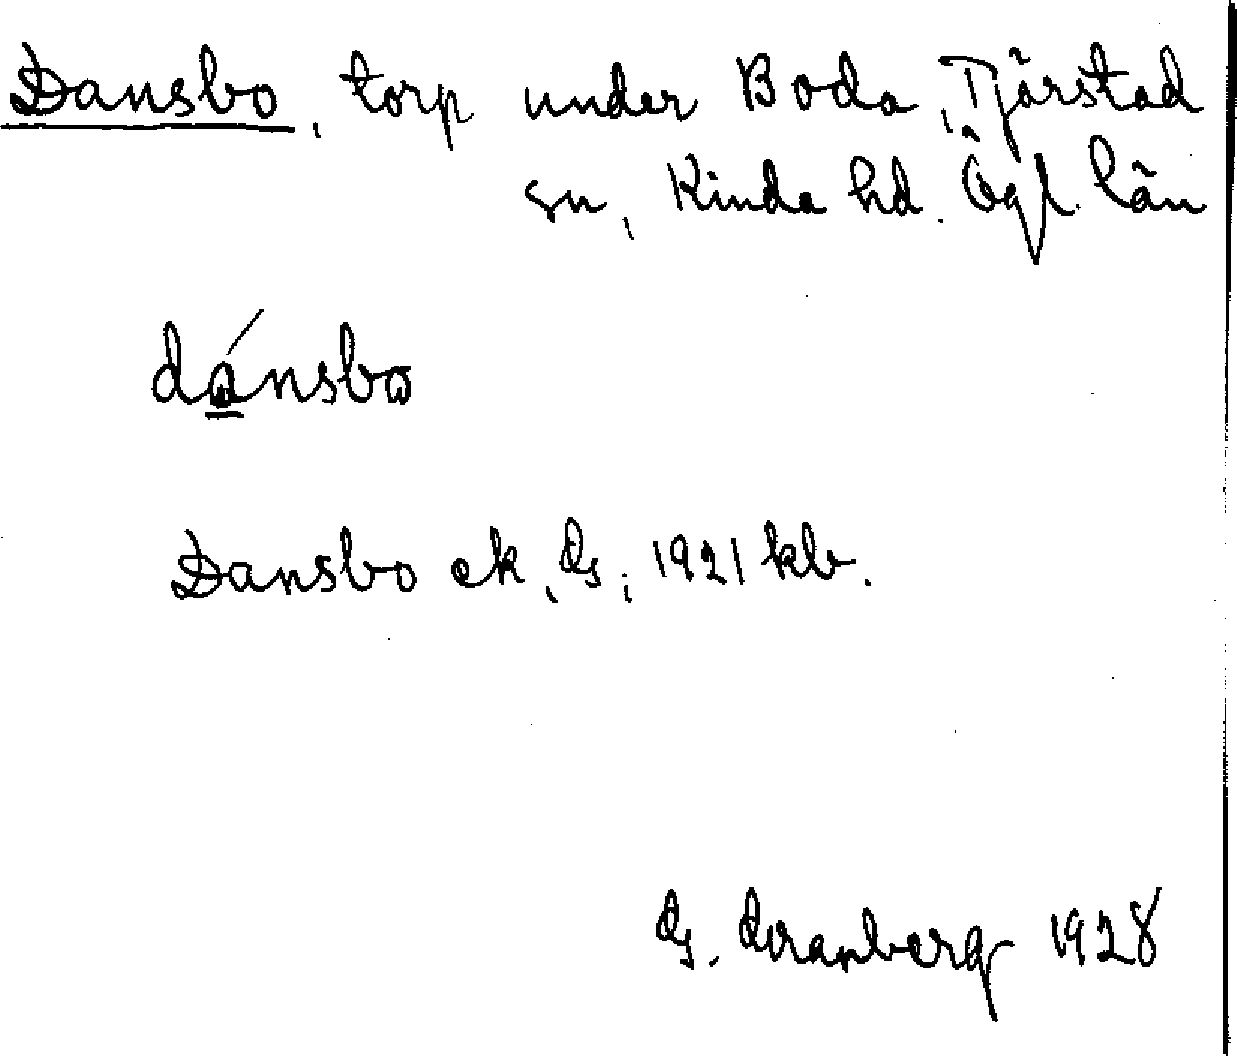 Dansbo, torp under Boda, Tjärstad
sn, Kinda hd. Ögl. län
dánsbo
Dansbo ek, Gs, 1921 klb.
G. Granberg 1928